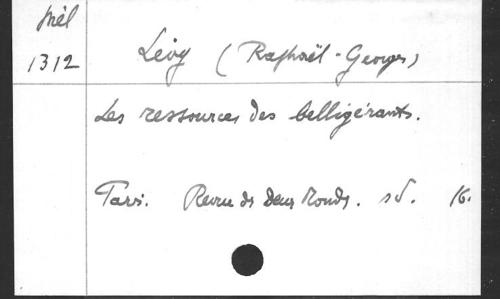 Mél
1312
Lévy (Raphaël-Georges)
Les ressources des belligérants.
Paris. Revue des deux Mondes. sd. 16.